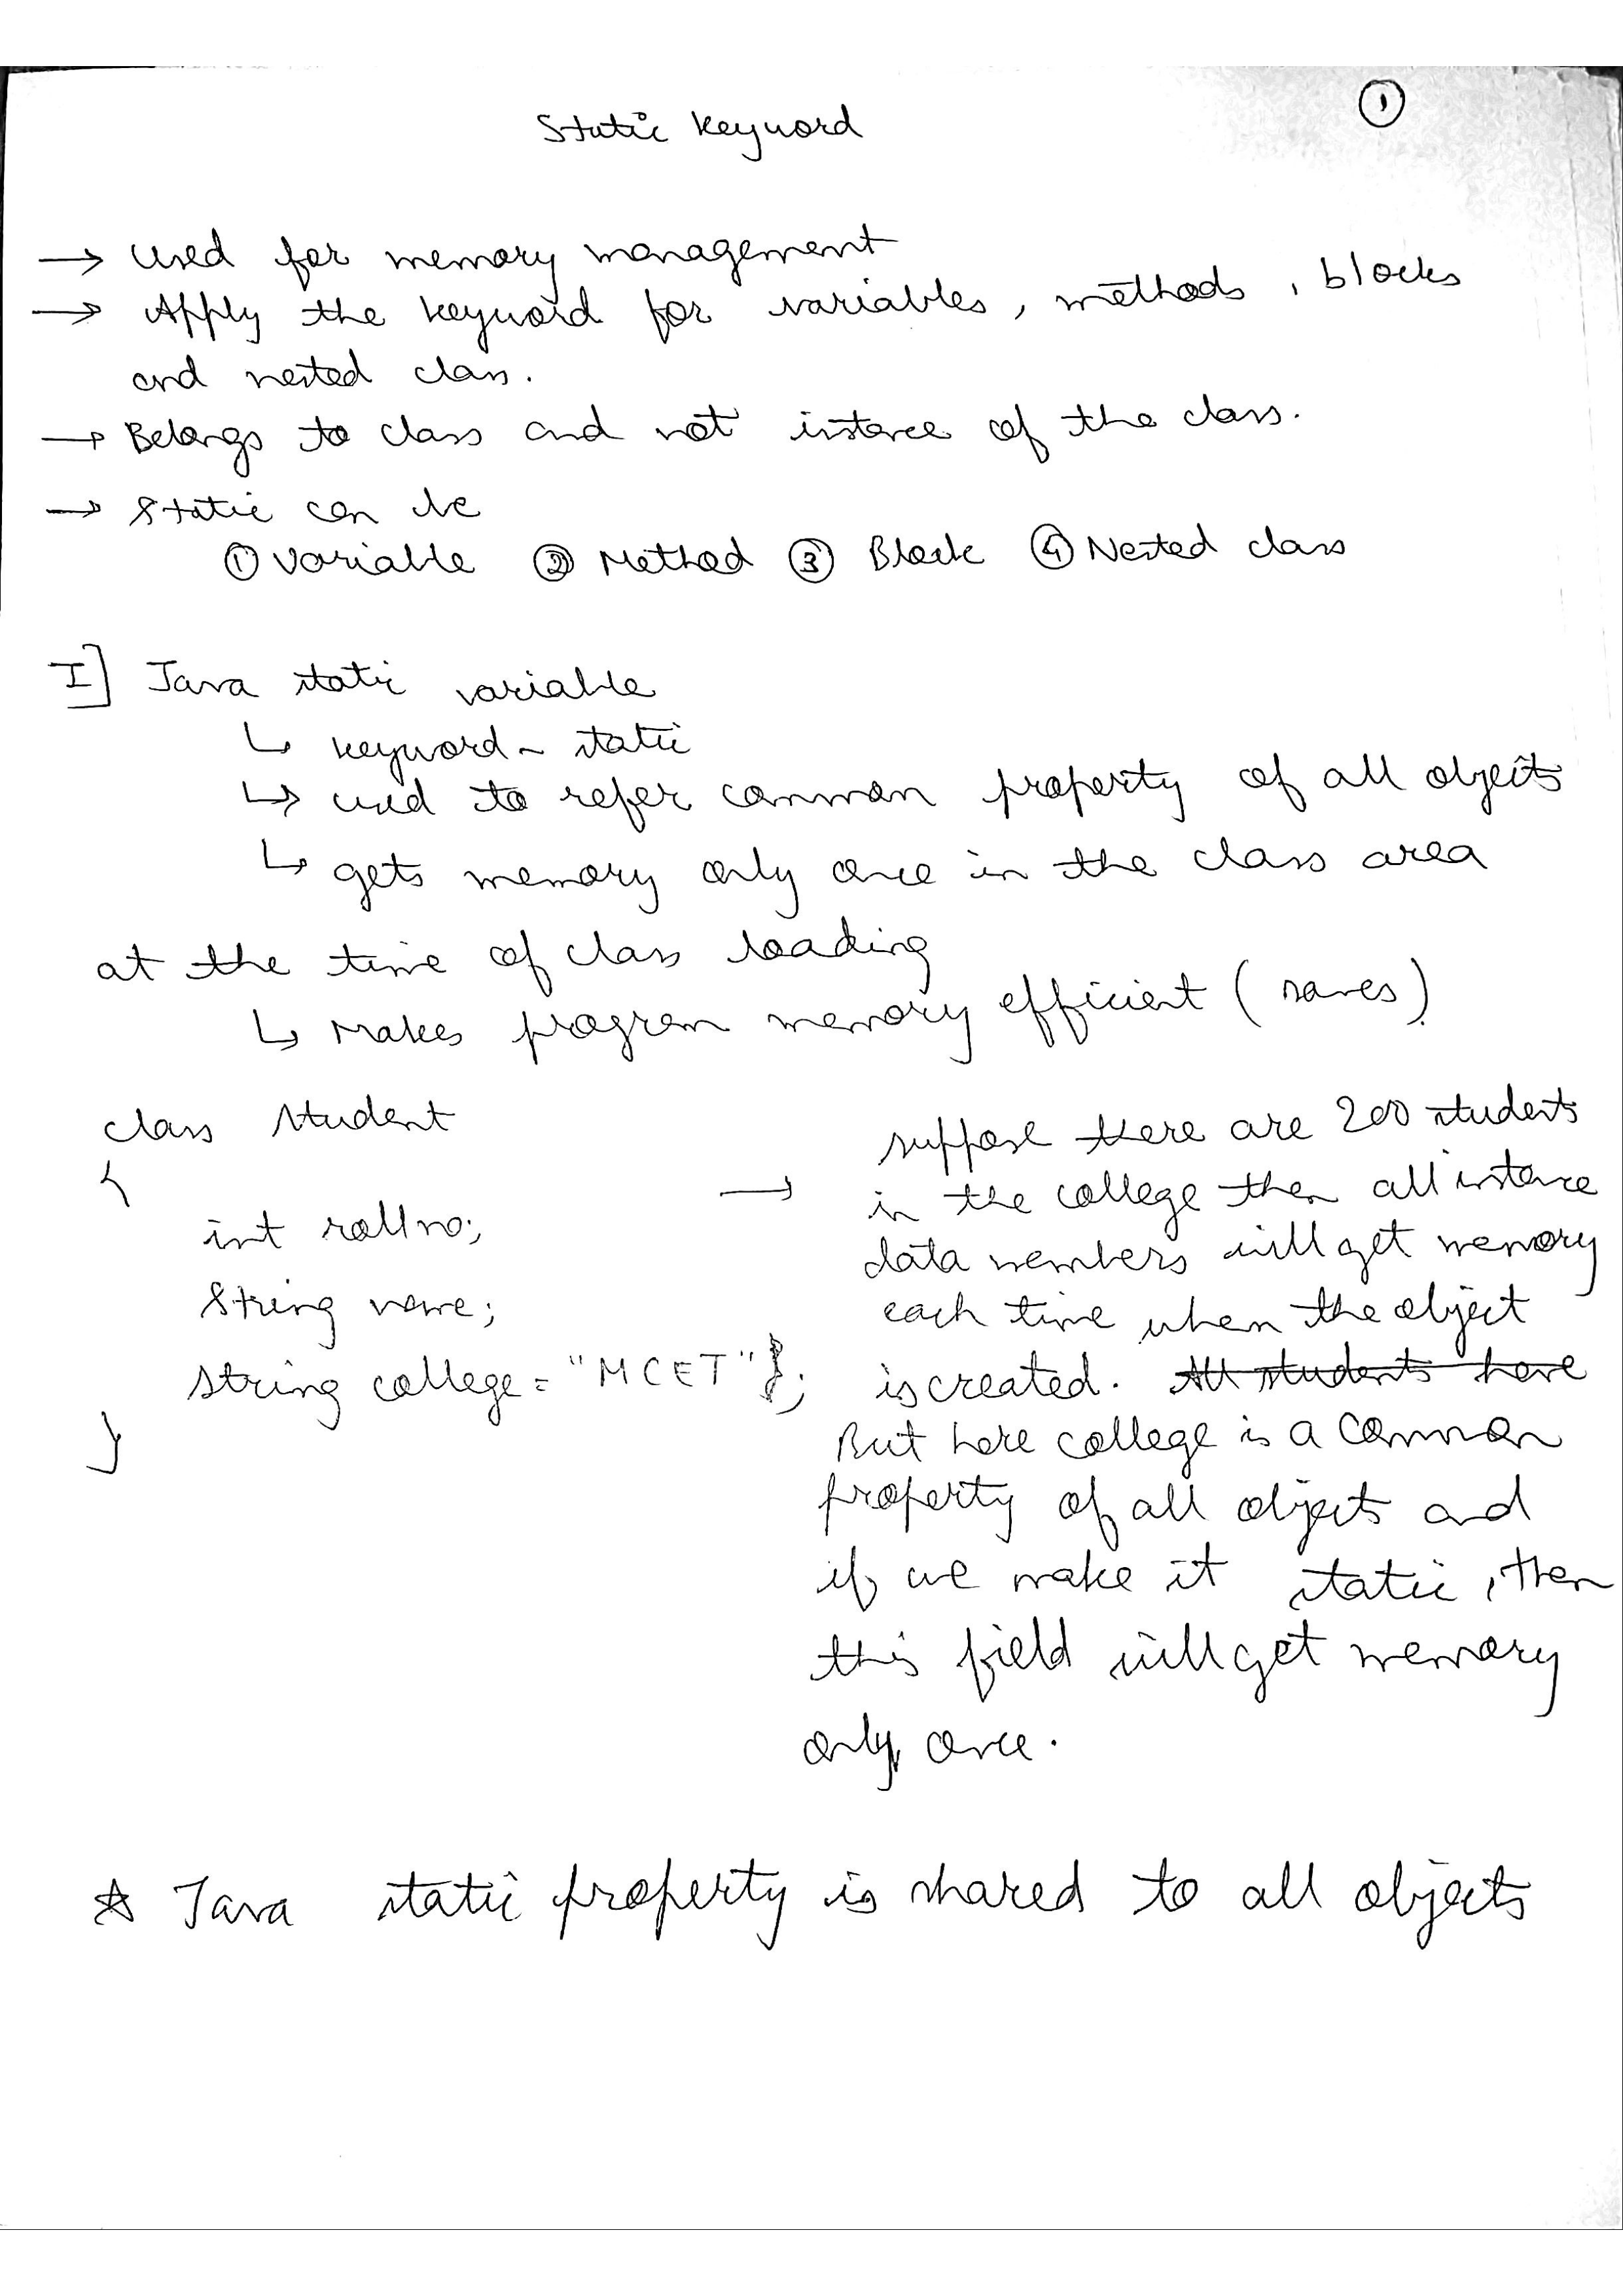 ①
Static keyword
→ Used for memory management
→ Apply the keyword for variables, methods, blocks
and nested class.
→ Belongs to class and not instance of the class.
→ Static can be
① Variable ② Method ③ Block ④ Nested class
I] Java static variable
↳ keyword - static
↳ used to refer common property of all objects
↳ gets memory only once in the class area
at the time of class loading
↳ Makes program memory efficient (saves)
class Student
{
int rollno;
String name;
String college = "MCET";
}
→ suppose there are 200 students
in the college then all instance
data members will get memory
each time when the object
is created. All students have
But here college is a common
property of all objects and
if we make it static, then
this field will get memory
only once.
☆ Java static property is shared to all objects